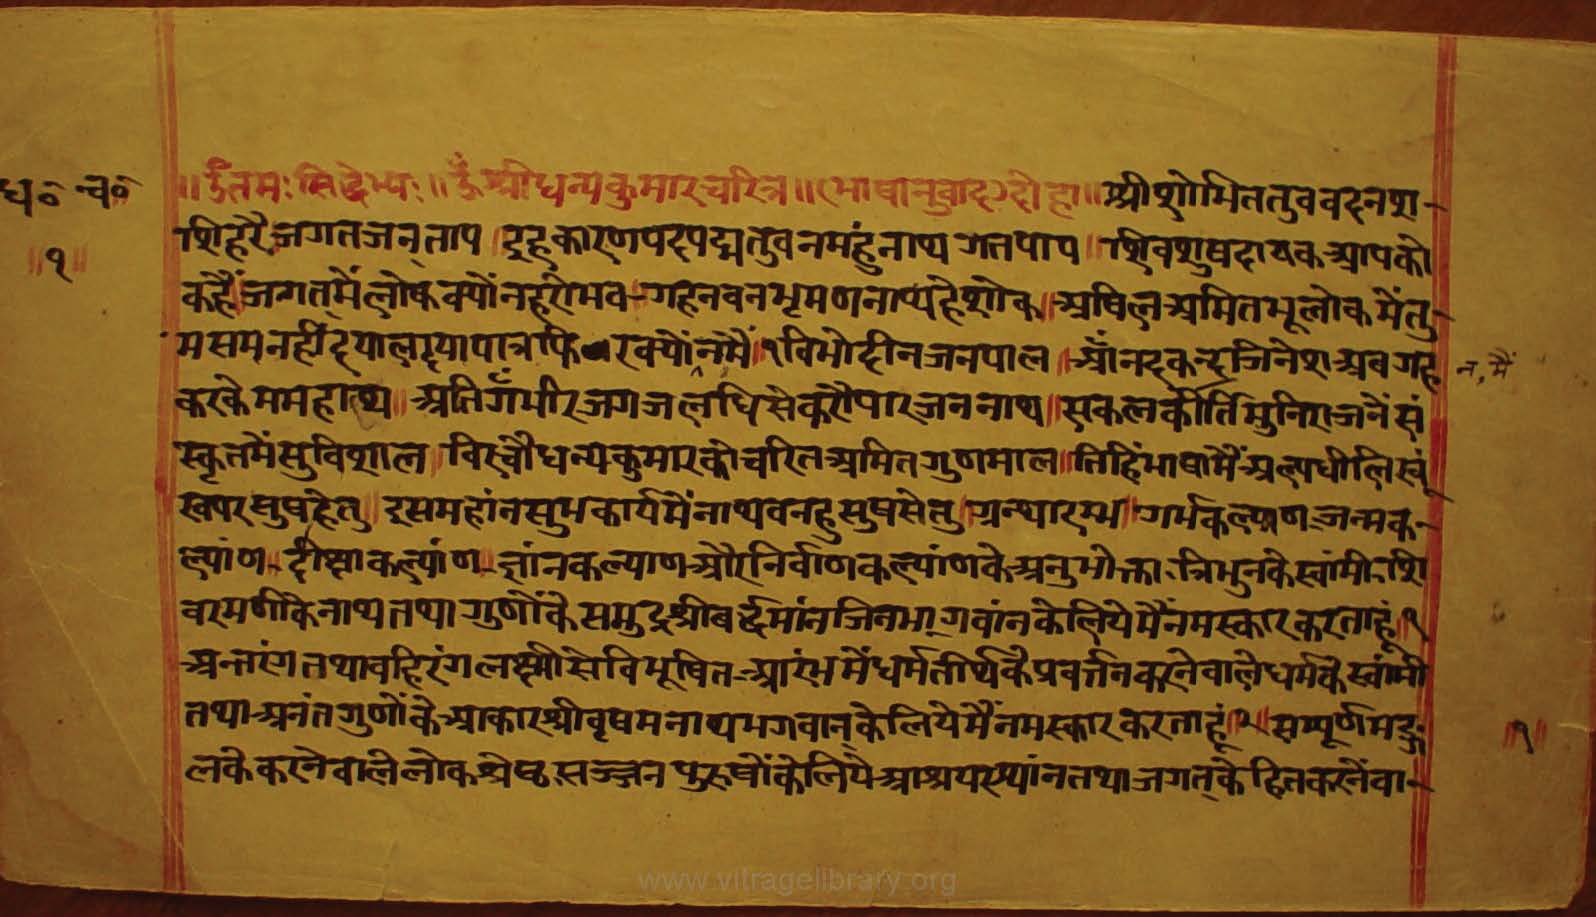 ध० च०
॥१॥
॥ ॐ नमः सिद्धेभ्यः ॥ ॐ श्री धन्यकुमारचरित्र ॥ (भाषानुवाद) दोहा ॥ श्री शोभित तुव वदनश-
शि हरै जगतजन् ताप । इह कारण पदपद्म तुव नमहुं नाथ गतपाप ॥ शिवशुषदायक आपको
कहैं जगत् मैं लोक क्यौं न हरो भव-गहनवन भृमण नाथ्य है शोक ॥ अषिल अमित भूलोक में तु-
म सम नहीं दयाल दृयापात्र फिर क्यों न मैं ॥१ विभो दीनजनपाल । आँनदकन्द जिनेश अब गह
न, मैं
कर के मम हाथ्य ॥ अति गँभीर जग जलधि से करौ पार जननाथ ॥ सकलकीर्ति मुनिराजनें सं
स्कृतमैं सुविशाल । विरचौ धन्यकुमार को चरित अमित गुणमाल ॥ तिहिं भाषामैं अल्पधी लिखूं
स्वपर सुषहेतु । इस महांन सुभकार्यमैं नाथ वनहु सुषसेतु । ग्रन्थारम्भ ॥ गर्भकल्याण-जन्मक-
ल्यांण-दीक्षाकल्यांण-ज्ञांनकल्याण-और निर्वाणकल्यांणके अनुभोक्ता. त्रिभुनके स्वांमी. शि
वरमणीके नाथ तथा गुणौंकै समुद्र श्री बर्द्धमांन जिनभा्गवांन के लिये मैं नमस्कार करता हूं ॥१
अन्तरंग तथा वहिरंग लक्ष्मीसे विभूषित-आरंभमें धर्मतीर्थकै प्रवर्त्तन करनेवाले धर्मके स्वांमी
तथा अनंत गुणौंकै आकार श्री वृषभनाथ भगवान् के लिये मैं नमस्कार करता हूं ॥२॥ सम्पूर्ण मङ्ग
॥१॥
लके करनेवाले लोकश्रेष्ठ. सज्जन पुरुषोंके लिये आश्रयस्थांन तथा जगत् कै हित करनेंवा-
www.vitragelibrary.org